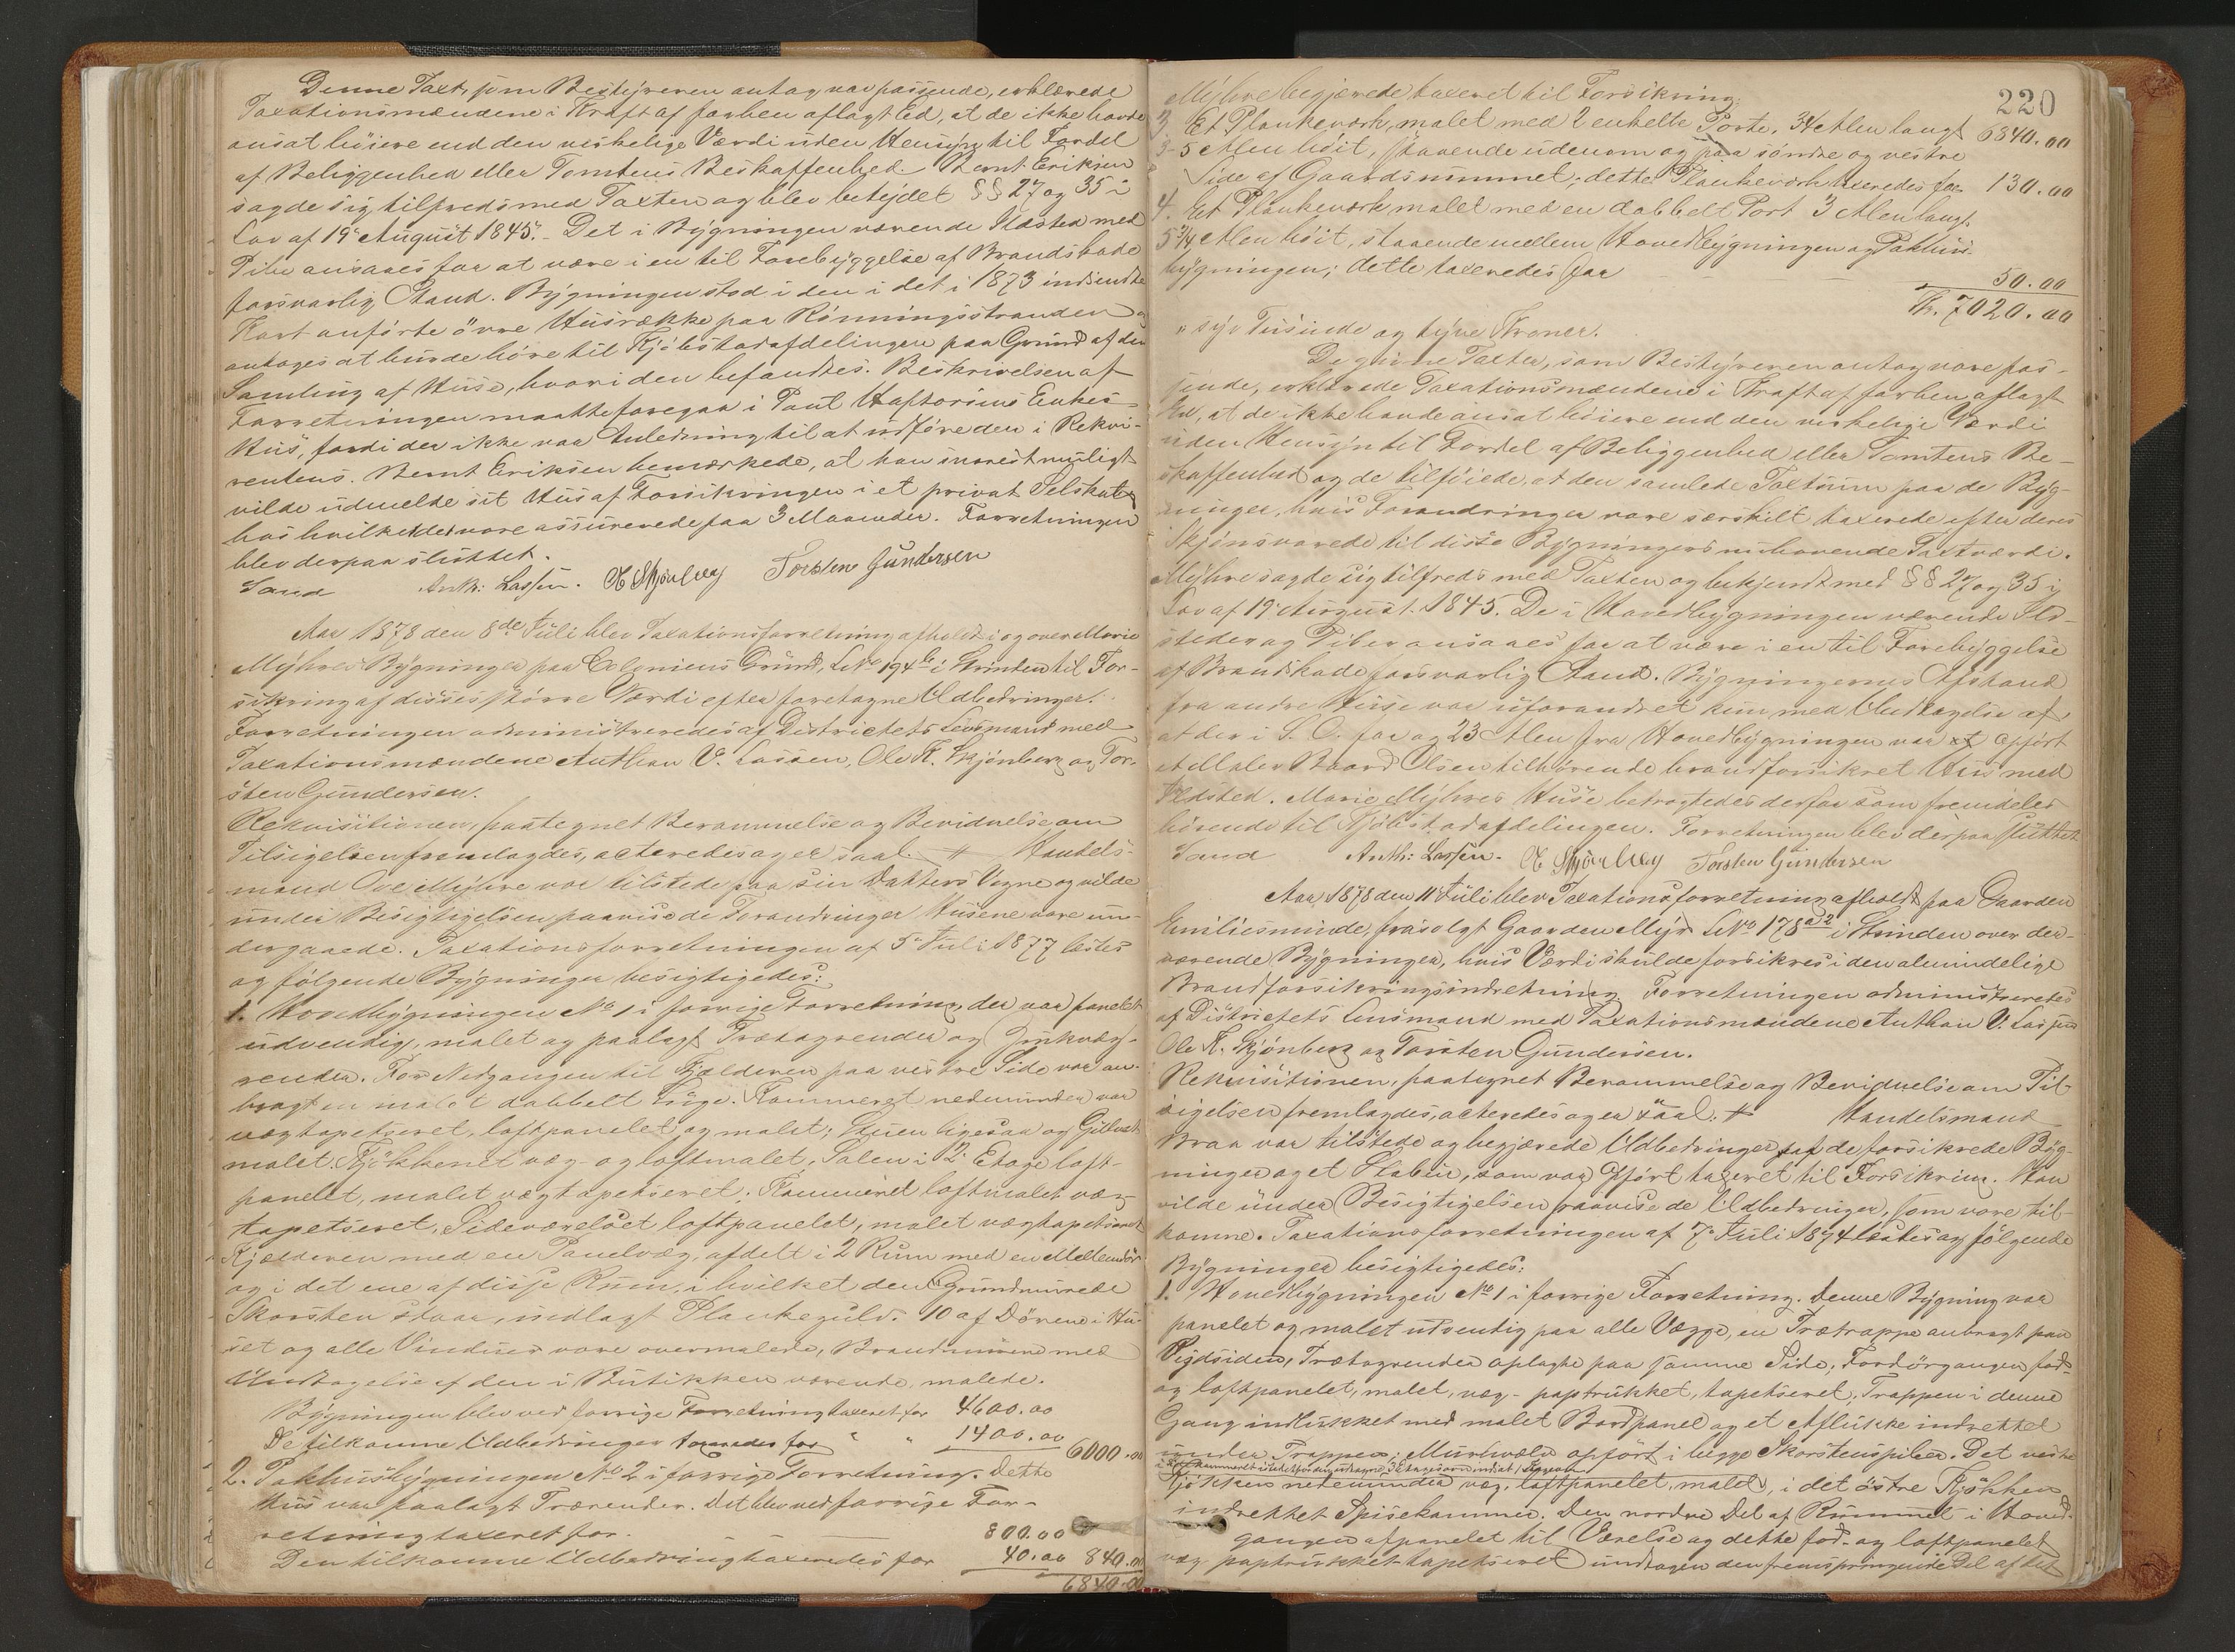 Denne Taxt, som Bestyreren antog var passende, erklærede
Taxationsmændene i Kraft af forhen aflagt Ed, at de ikke havde
ansat höiere end den virkelige Værdi uden Hensyn til Fordel
af Beliggenhed eller Tomtens Beskaffenhed. Bernt Eriksen
sagde sig tilfreds med Taxten og blev betydet §§ 27 og 35 i
Lov af 19de August 1845. - Det i Bygningen værende Ildsted med
Pibe ansaaes for at være i en til Forebyggelse af Brandskade
forsvarlig Stand. Bygningen stod i den i det i 1873 indsendte
Kart anförte övre Husrække paa Rönningsstranden og
antages at burde höre til Kjöbstadafdelingen paa Grund af den
Samling af Huse, hvori den befandtes. Beskrivelsen af
Forretningen maatte foregaa i Poul Haftorsens Enkes
Hus, fordi der ikke var Anledning til at udföre den i Rekvi-
rentens. Bernt Eriksen bemærkede, at han snarest muligt
vilde udmelde sit Hus af Forsikringen i et privat Selskab
hos hvilket det vare assurerede paa 3 Maaneder. Forretningen
blev derpaa sluttet.
Sand Anth: Lassen. O Skjönberg Torsten Gundersen
Aar 1878 den 8de Juli blev Taxationsforretning afholdt i og over Marie
Myhres Bygninger paa Coloniens Grund, LNo 194b i Strinden til For-
sikring af disses större Værdi efter foretagne Udbedringer.
Forretningen administreredes af Districtets Lensmand med
Taxationsmændene Anthon V. Lassen, Ole K. Skjönberg og Tor-
sten Gundersen.
Rekvisitionen, paategnet Berammelse og Bevidnelse om
Tilsigelsen fremlagdes, acteredes og er saal. # Handels-
mand Ole Myhre var tilstede paa sin Datters Vegne og vilde
under Besigtigelsen paavise de Forandringer Husene vare un-
dergaaede. Taxationsforretningen af 5te Juli 1877 læstes
og fölgende Bygninger besigtigedes:
1. Hovedbygningen No 1 i forrige Forretning, der var panelet
udvendig, malet og paalagt Trætagrender og Zinkvæg-
render. For Nedgangen til Kjælderen paa vestre Side var an-
bragt en malet dobbelt Luge. Kammeret nedenunder var
vægtapetseret, loftpanelet og malet; Stuen ligesaa og Gulvet
malet. Kjökkenet væg- og loftmalet, Salen i 2. Etage loft-
panelet, malet vægtapetseret. Kammeret loftmalet væg-
tapetseret, Sideværelset loftpanelet, malet vægtapetseret
Kjælderen med en Panelvæg, afdelt i 2 Rum med en Mellemdör
og i det ene af disse Rum, i hvilket den Grundmurede
Skorsten staar, indlagt Plankegulv. 10 af Dörene i Hu-
set og alle Vinduer vare overmalede, Brandmurene med
Undtagelse af den i Butikken værende, malede.
Bygningen blev ved forrige Forretning taxeret for 4600.00
De tilkomne Udbedringer taxeredes for " " 1400.00 6000.00
2. Pakhusbygningen No 2 i forrige Forretning. Dette
Hus var paalagt Trærender. Det blev ved forrige For-
retning taxeret for. 800.00
Den tilkomne Udbedring taxeredes for 40.00 840.00
6840.00
220
Myhre begjærede taxeret til Forsikring:
3. Et Plankeværk, malet med 2 enkelte Porte, 34 Alen langt 6840.00
3-5 Alen höit, staaende udenom og paa söndre og vestre
Side af Gaardsrummet; dette Plankeværk taxeredes for 130.00
4. Et Plankeværk malet med en dobbelt Port 3 Alen langt,
5 3/4 Alen höit, staaende mellem Hovedbygningen og Pakhus-
bygningen; dette taxeredes for 50.00
Kr. 7020.00
" syv Tusinde og tyve Kroner.
De givne Taxter, som Bestyreren antog vare pas-
sende, erklærede Taxationsmændene i Kraft af forhen aflagt
Ed, at de ikke havde ansat höiere end den virkelige Værdi
uden Hensyn til Fordel af Beliggenhed eller Tomtens Be-
skaffenhed og de tilföiede, at den samlede Taxtsum paa de Byg-
ninger, hvis Forandringer vare særskilt taxerede efter deres
Skjön svarede til disse Bygningers nuhavende Taxtværdi.
Myhre sagde sig tilfreds med Taxten og bekjendt med §§ 27 og 35 i
Lov af 19de August 1845. De i Hovedbygningen værende Ild-
steder og Piber ansaaes for at være i en til Forebyggelse
af Brandskade forsvarlig Stand. Bygningernes Afstand
fra andre Huse var uforandret kun med Undtagelse af,
at der i S. O. for og 23 Alen fra Hovedbygningen var opfört
et Maler Baard Olsen tilhörende brandforsikret Hus med
Ildsted. Marie Myhres Huse betragtedes derfor som fremdeles
hörende til Kjöbstadafdelingen. Forretningen blev derpaa sluttet
Sand Anth: Lassen. O Skjönberg Torsten Gundersen
Aar 1878 den 11te Juli blev Taxationsforretning afholdt paa Gaarden
Emiliesminde, frasolgt Gaarden Myr LNo 178a2 i Strinden over der-
værende Bygninger, hvis Værdi skulde forsikres i den almindelige
Brandforsikringsindretning. Forretningen administreredes
af Districtets Lensmand med Taxationsmændene Anthon V. Lassen
Ole K. Skjönberg og Torsten Gundersen.
Rekvisitionen, paategnet Berammelse og Bevidnelse om Til-
sigelsen fremlagdes, acteredes og er saal. # Handelsmand
Braa var tilstede og begjærede Udbedringer paa de forsikrede Byg-
ninger og et Stabur, som var opfört taxeret til Forsikring. Han
vilde under Besigtigelsen paavise de Udbedringer, som vare til-
komne. Taxationsforretningen af 7de Juli 1874 læstes og fölgende
Bygninger besigtigedes:
1. Hovedbygningen No 1 i forrige Forretning. Denne Bygning var
panelet og malet udvendig paa alle Vægge, en Trætrappe anbragt paa
Sydsiden, Trætagrender oplagte paa samme Side, Fordörgangen fod-
og loftpanelet, malet, væg- paptrukket, tapetseret; Trappen i denne
Gang indlukket med malet Bordpanel og et Aflukke indrettet
under Trappen; Murhvælv opfört i begge Skorstenspiber. Det vestre
Kjökken nedenunder væg, loftpanelet, malet, i det östre Kjökken
indrettet Spisekammer. Den nordre Del af Rummet i Hoved-
gangen afpanelet til Værelse og dette fod- og loftpanelet
væg paptrukket tapetseret undtagen den fremspringende Del af det